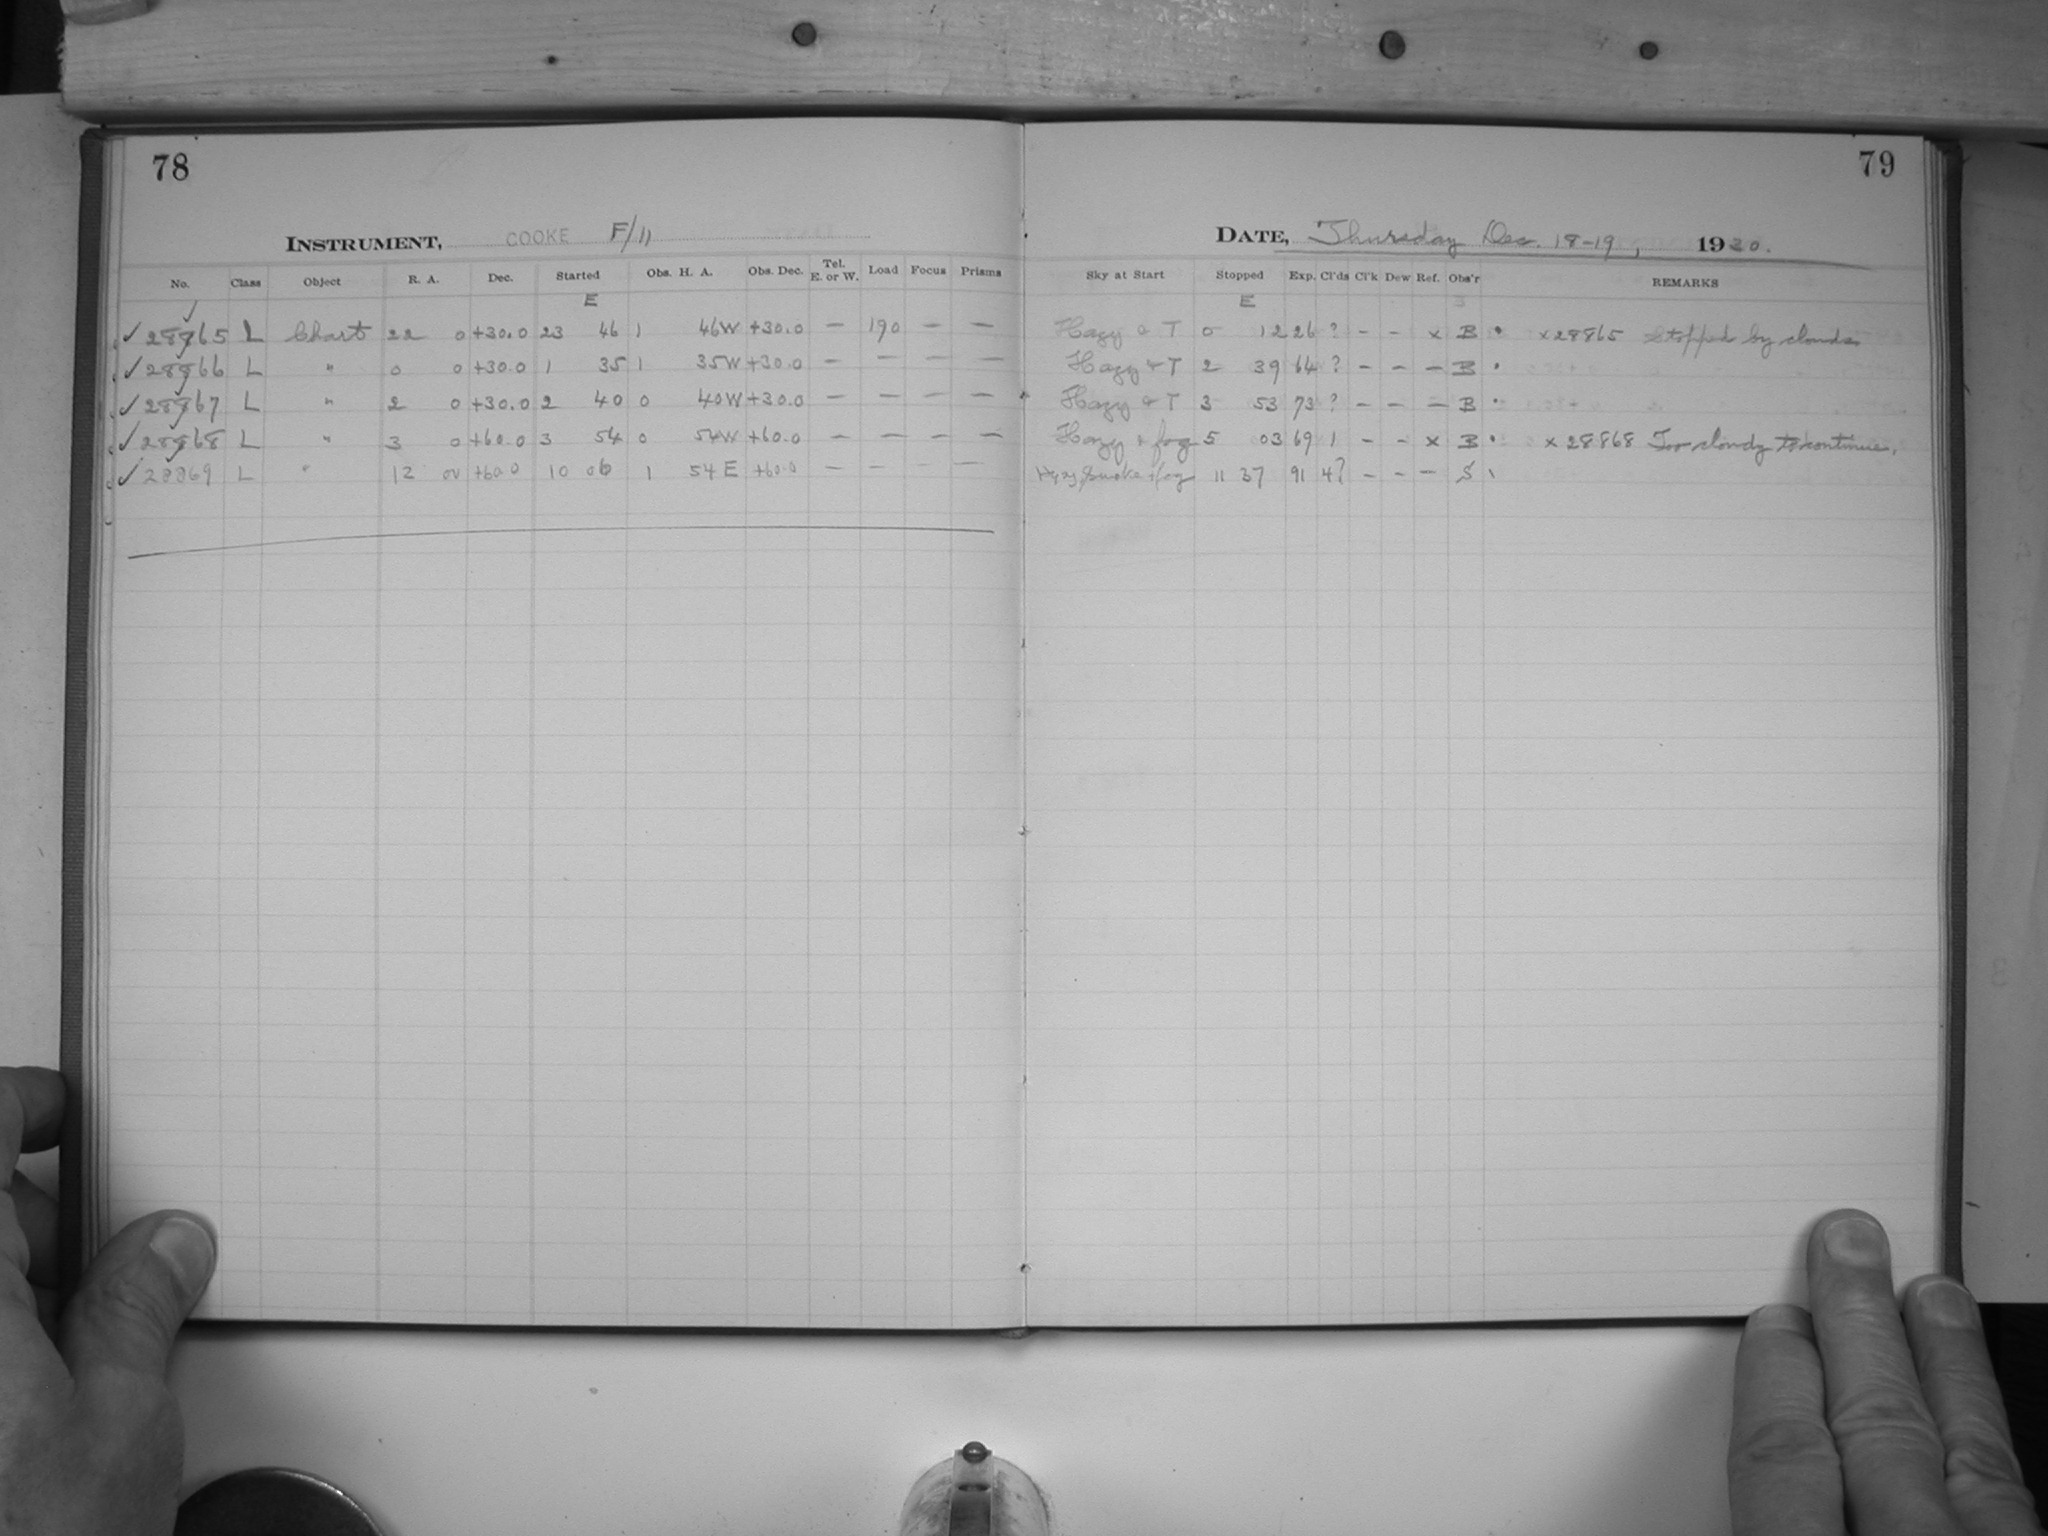 78
INSTRUMENT, COOKE F/11
No. Class Object R. A. Dec. Started Obs. H. A. Obs. Dec. Tel. E. or W. Load Focus Prisms
E
✓ 28865 L Chart 22 0 +30.0 23 46 1 46W +30.0 — 190 — —
✓ 28866 L " 0 0 +30.0 1 35 1 35W +30.0 — — — —
✓ 28867 L " 2 0 +30.0 2 40 0 40W +30.0 — — — —
✓ 28868 L " 3 0 +60.0 3 54 0 54W +60.0 — — — —
✓ 28869 L " 12 00 +60.0 10 06 1 54 E +60.0 — — — —
79
DATE, Thursday Dec. 18-19, 1930.
Sky at Start Stopped Exp. Cl'ds Cl'k Dew Ref. Obs'r REMARKS
E
Hazy & T 0 12 26 ? — — x B x28865 Stopped by clouds
Hazy & T 2 39 64 ? — — — B
Hazy & T 3 53 73 ? — — — B
Hazy + fog 5 03 69 1 — — x B x 28868 Too cloudy to continue.
Hazy smoke + fog 11 37 91 4? — — — S